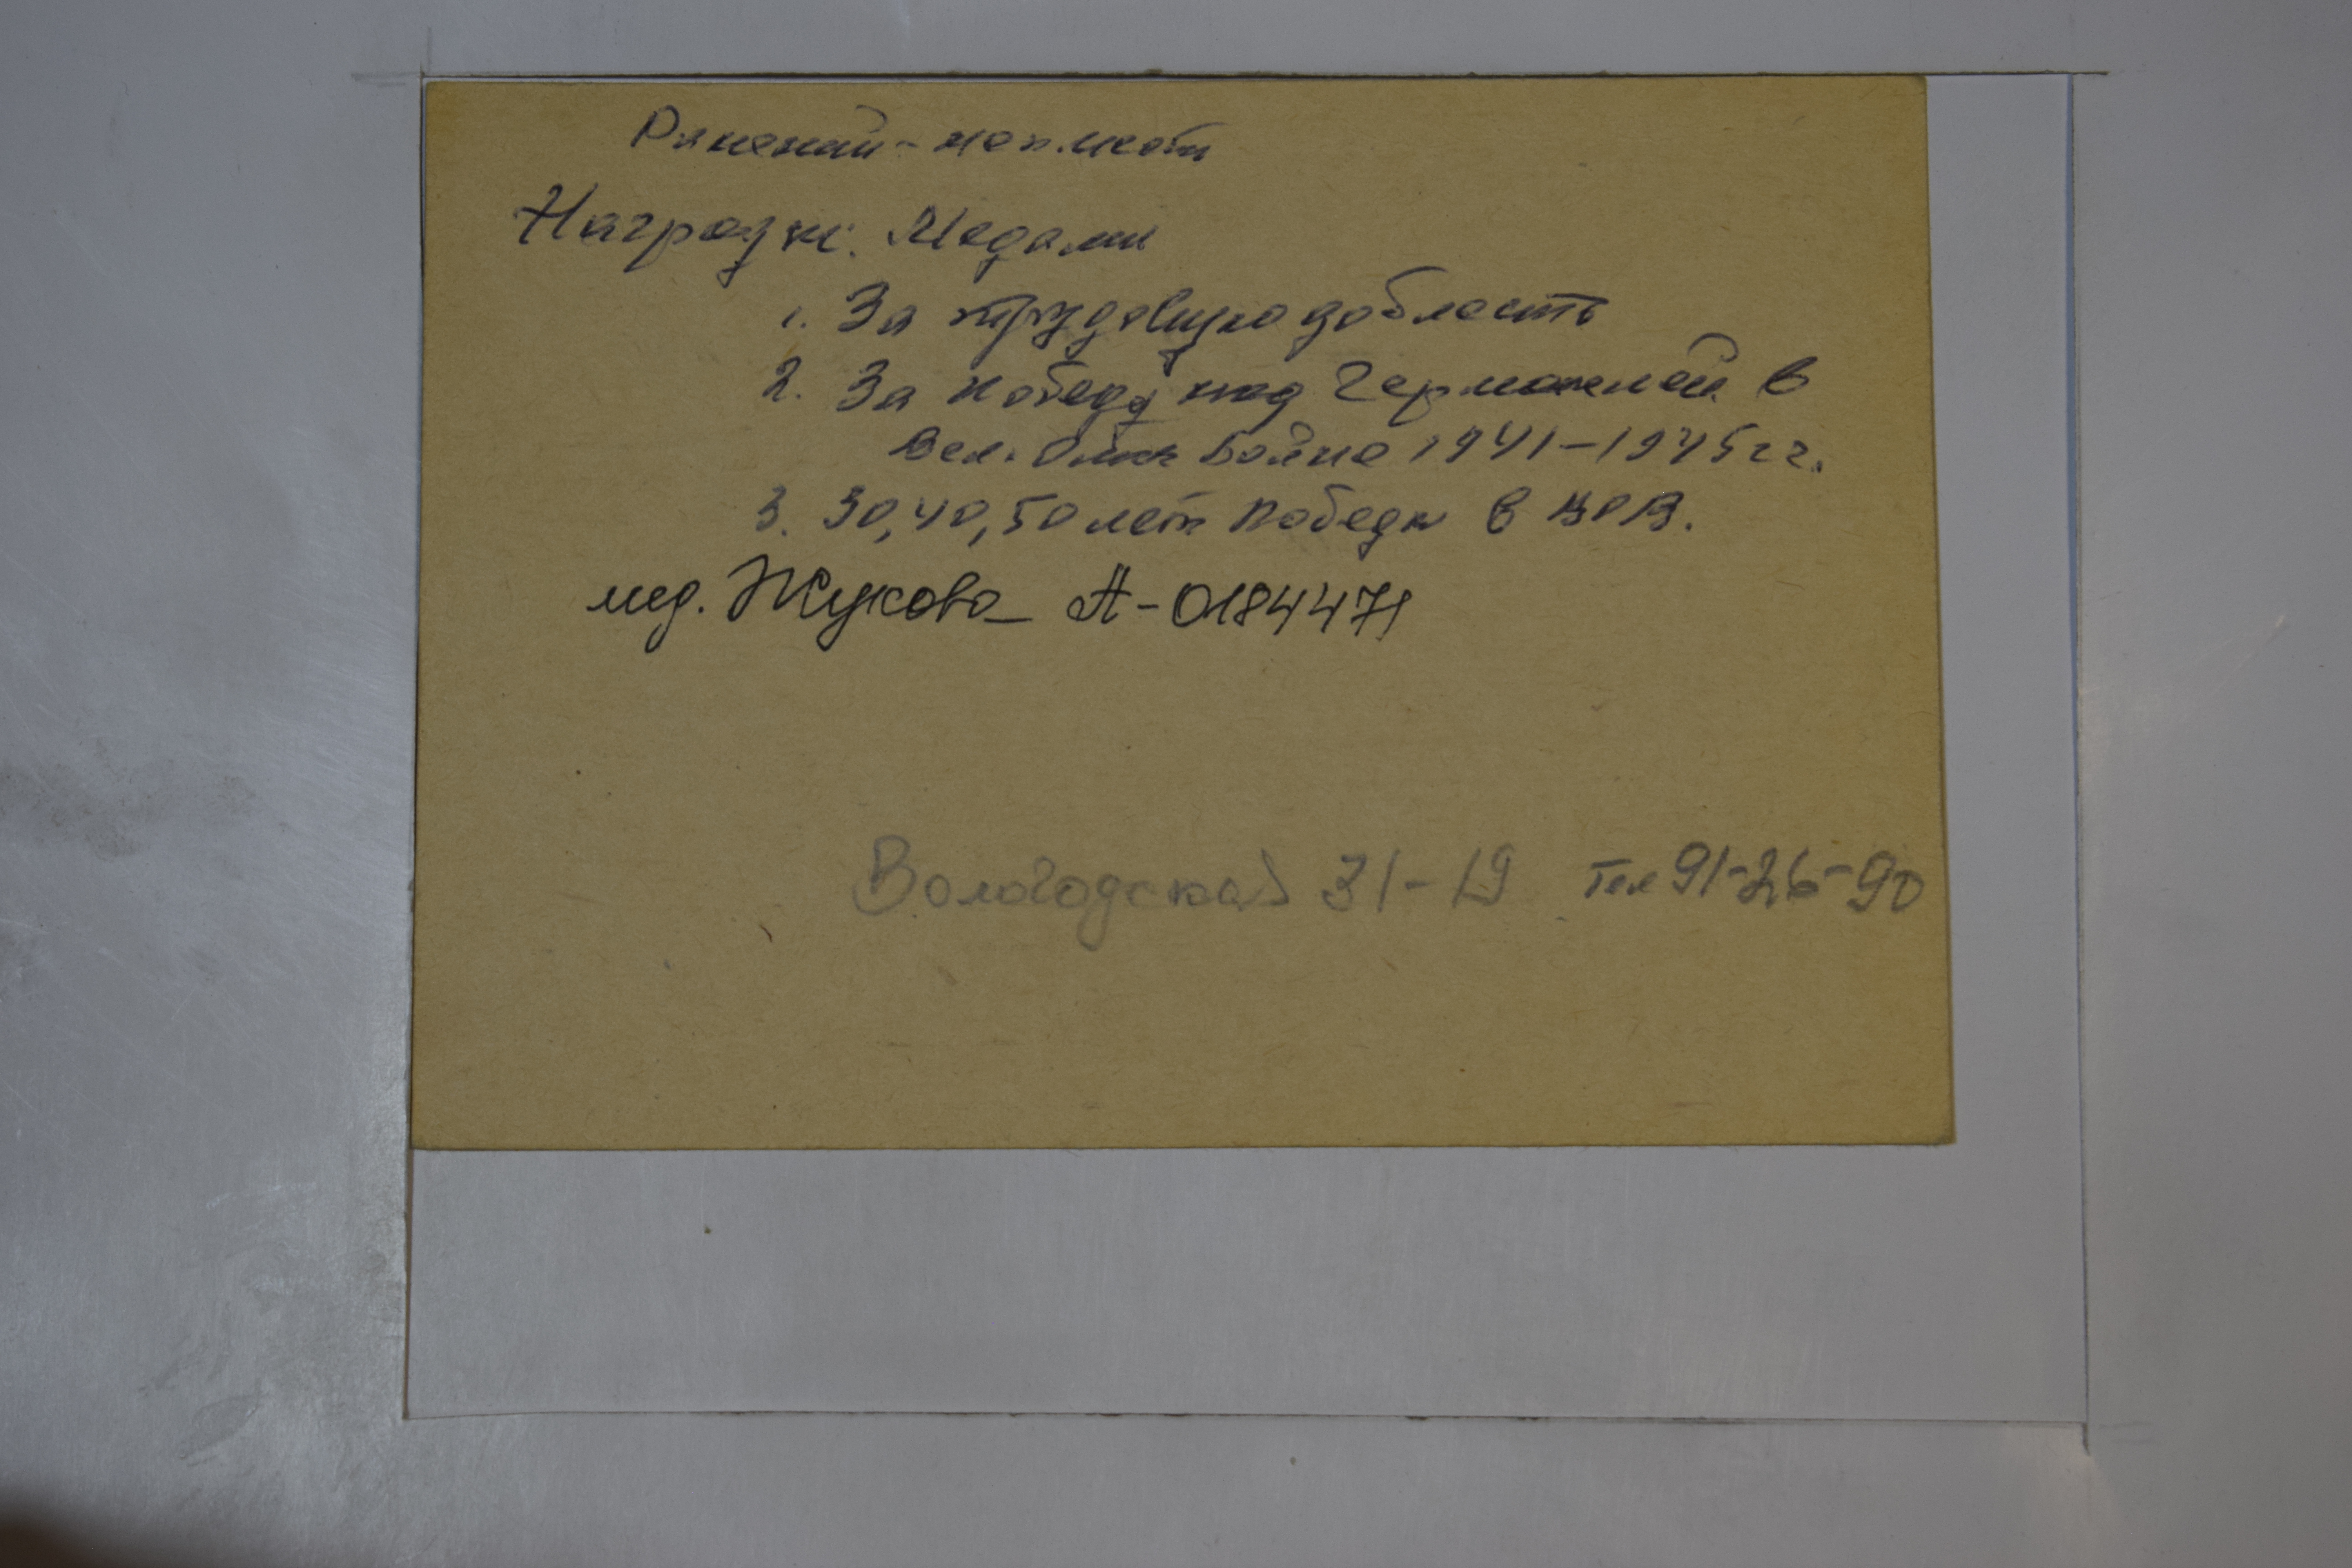 Ранений - не имеет
Награжд. Медали
1. За трудовую доблесть
2. За победу над Германией в
Вел. Отеч Войне 1941-1945 гг.
3. 30, 40, 50 лет Победы в ВОВ.
мед. Жукова А-0184471
Вологодская 31-19 Тел 91-26-90